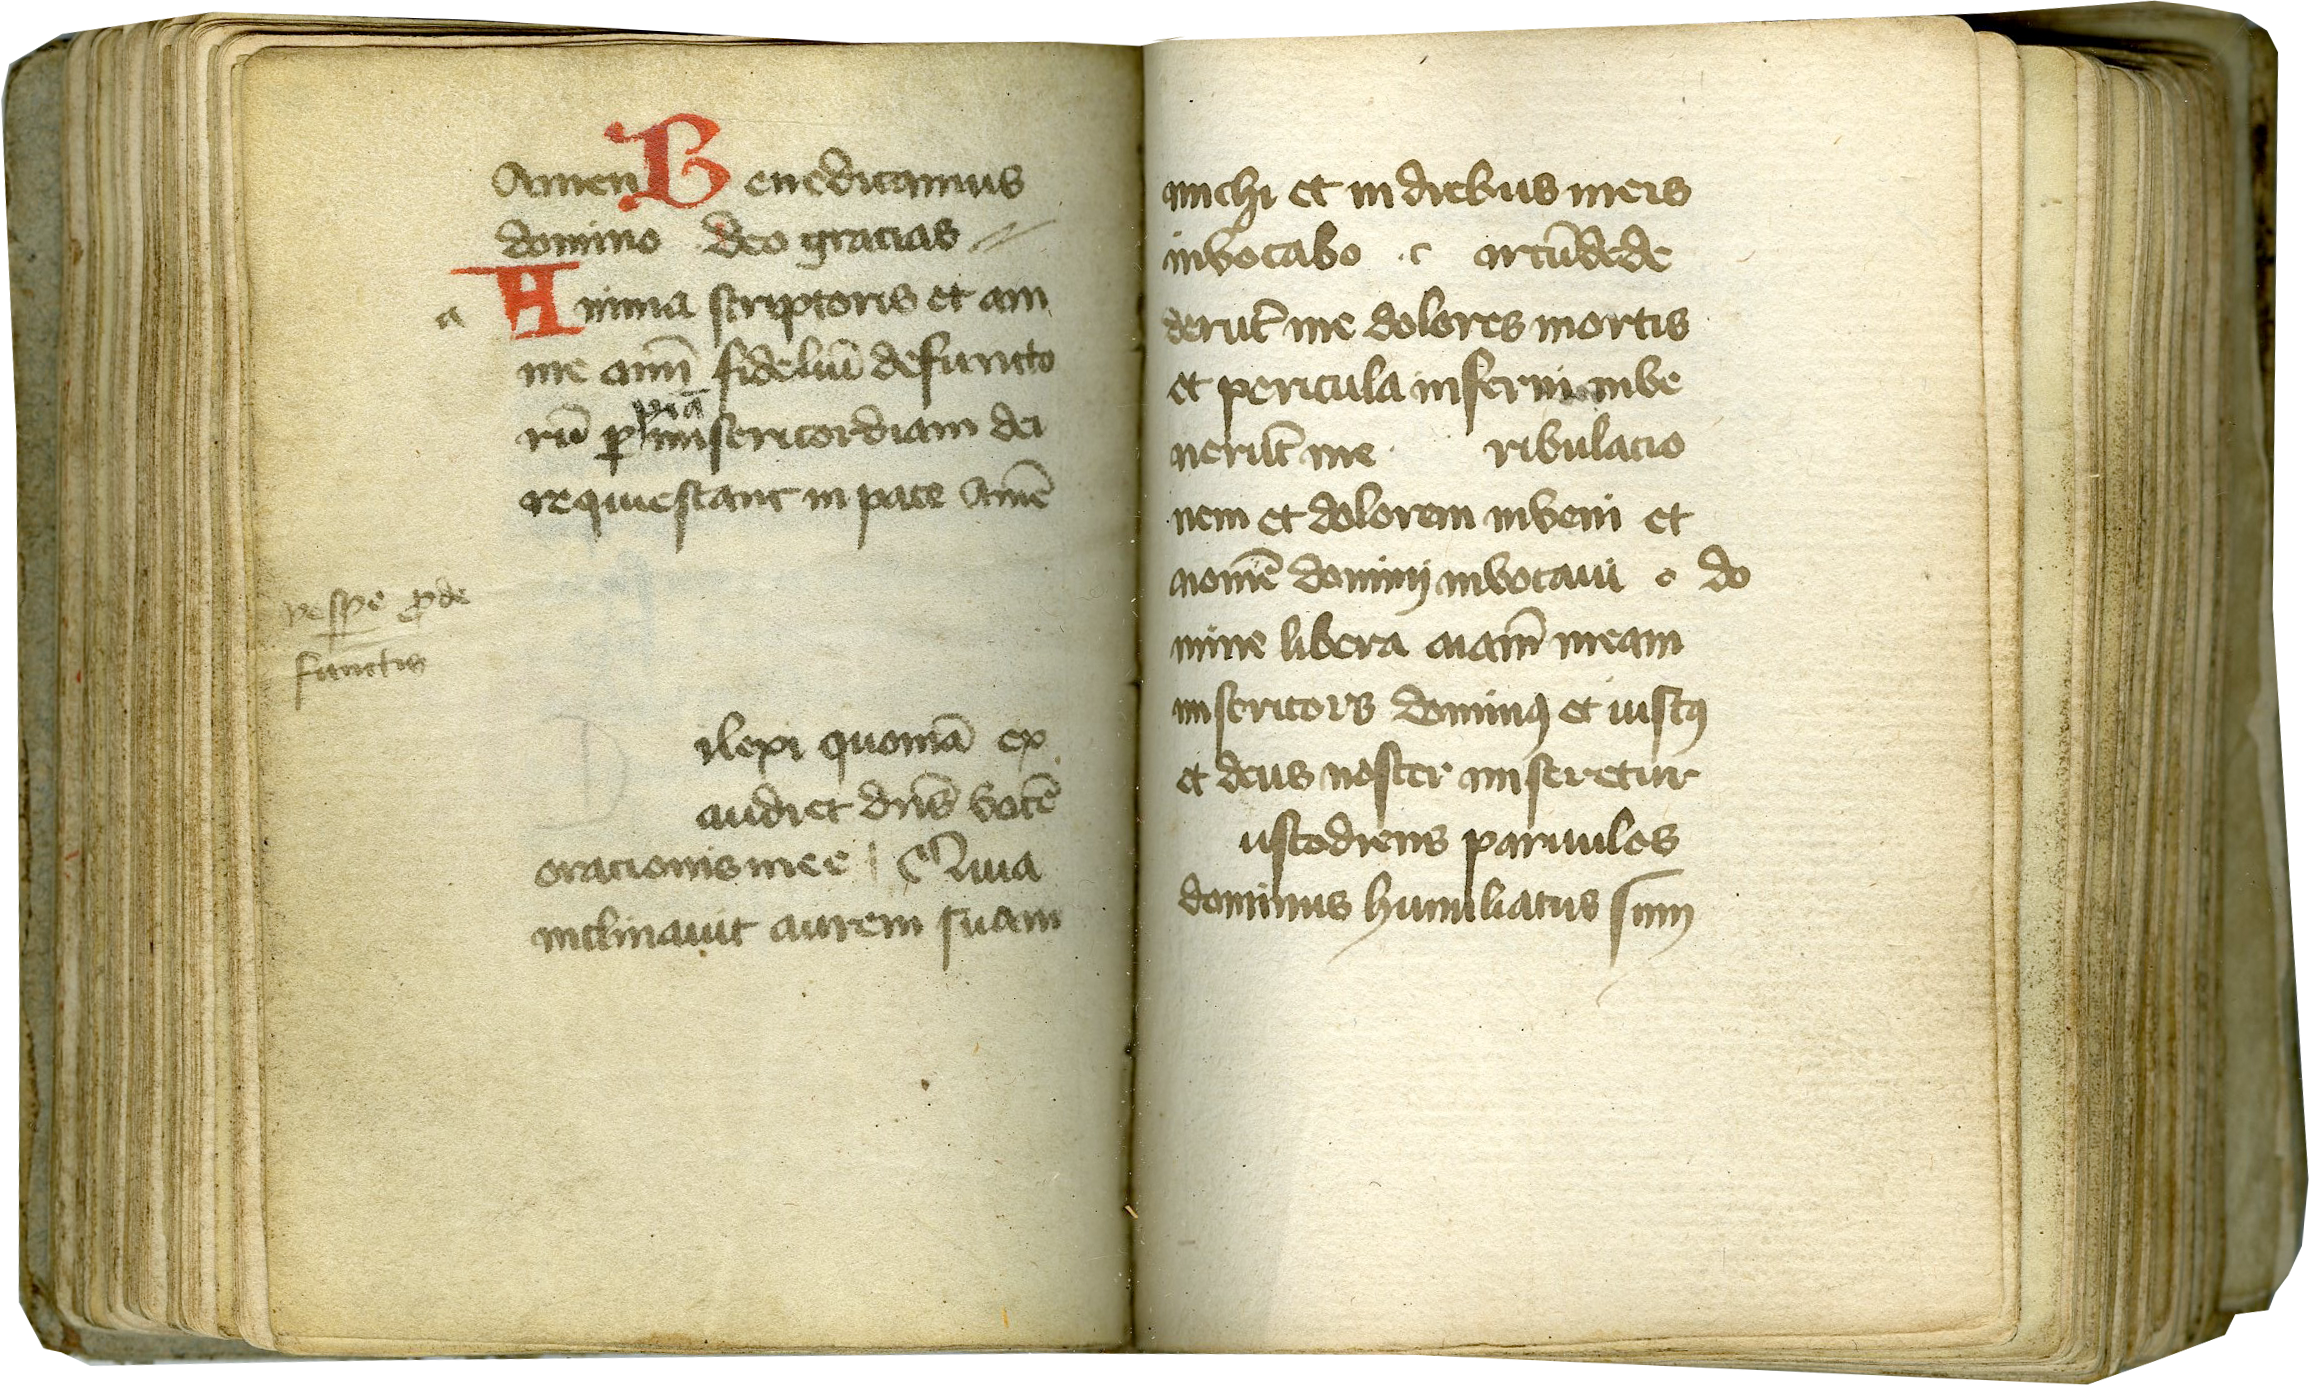 Amen Benedicamus
domino deo gracias
a
Anima scriptoris et ani
me aim̄ fideliū defuncto
rū ꝑ piā misericordiam dei
requiescant in pace Amē
vespe ꝓ de
functis
ilexi quoniā ex
audiet dn̄s vocē
oracionis mee Quia
inclinavit aurem suam
michi et in diebus meis
invocabo c ircūdede
derūt me dolores mortis
et pericula inferni inve
nerūt me ribulacio
nem et dolorem inveni et
nomē dominj invocavi o do
mine libera aiam̄ meam
misericors dominꝰ et iustꝰ
et deus noster miseretur
ustodiens parvulos
dominus humiliatus sum